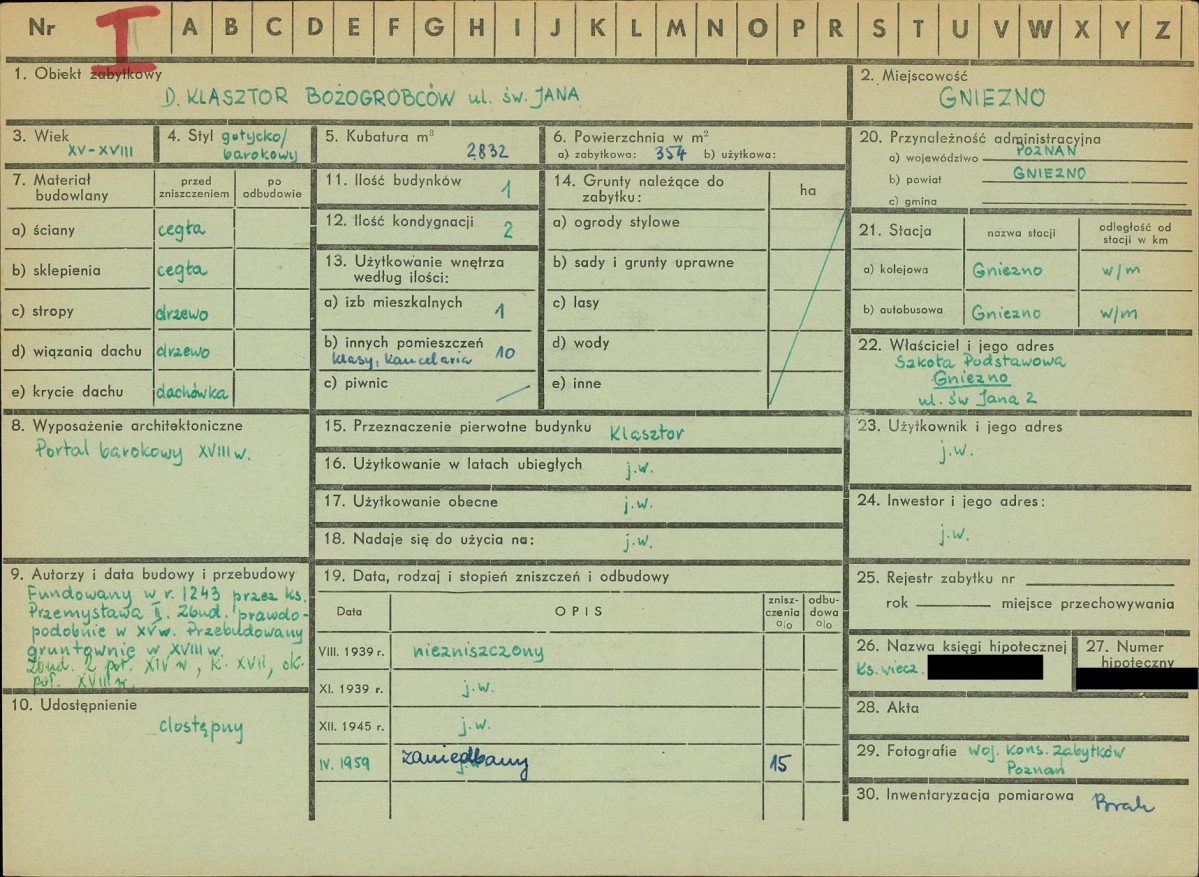 Nr I A B C D E F G H I J K L M N O P R S T U V W X Y Z
1. Obiekt zabytkowy
D. KLASZTOR BOŻOGROBCÓW ul. św. JANA
2. Miejscowość
GNIEZNO
3. Wiek
XV-XVIII
4. Styl gotycko/
barokowy
5. Kubatura m³
2832
6. Powierzchnia w m²
a) zabytkowa: 354 b) użytkowa:
20. Przynależność administracyjna
a) województwo POZNAŃ
b) powiat GNIEZNO
c) gmina
7. Materiał
budowlany
przed
zniszczeniem
po
odbudowie
a) ściany cegła
b) sklepienia cegła
c) stropy drzewo
d) wiązania dachu drzewo
e) krycie dachu dachówka
11. Ilość budynków 1
12. Ilość kondygnacji 2
13. Użytkowanie wnętrza
według ilości:
a) izb mieszkalnych 1
b) innych pomieszczeń
klasy, kancelaria 10
c) piwnic
14. Grunty należące do
zabytku:
ha
a) ogrody stylowe
b) sady i grunty uprawne
c) lasy
d) wody
e) inne
21. Stacja
nazwa stacji
odległość od
stacji w km
a) kolejowa Gniezno w/m
b) autobusowa Gniezno w/m
22. Właściciel i jego adres
Szkoła Podstawowa
Gniezno
ul. św Jana 2
8. Wyposażenie architektoniczne
Portal barokowy XVIII w.
15. Przeznaczenie pierwotne budynku Klasztor
16. Użytkowanie w latach ubiegłych j.w.
17. Użytkowanie obecne j.w.
18. Nadaje się do użycia na: j.w.
23. Użytkownik i jego adres
j.w.
24. Inwestor i jego adres:
j.w.
9. Autorzy i data budowy i przebudowy
Fundowany w r. 1243 przez ks.
Przemysława II. Zbud. prawdo-
podobnie w XV w. Przebudowany
gruntownie w XVIII w.
Zbud. 2 poł. XIV w, k. XVII, ok.
poł. XVIII w.
10. Udostępnienie
dostępny
19. Data, rodzaj i stopień zniszczeń i odbudowy
Data
OPIS
znisz-
czenia
o/o
odbu-
dowa
o/o
VIII. 1939 r. niezniszczony
XI. 1939 r. j.w.
XII. 1945 r. j.w.
IV. 1959 zaniedbany 15
25. Rejestr zabytku nr
rok miejsce przechowywania
26. Nazwa księgi hipotecznej
Ks. wiecz.
27. Numer
hipoteczny
28. Akta
29. Fotografie Woj. Kons. Zabytków
Poznań
30. Inwentaryzacja pomiarowa Brak